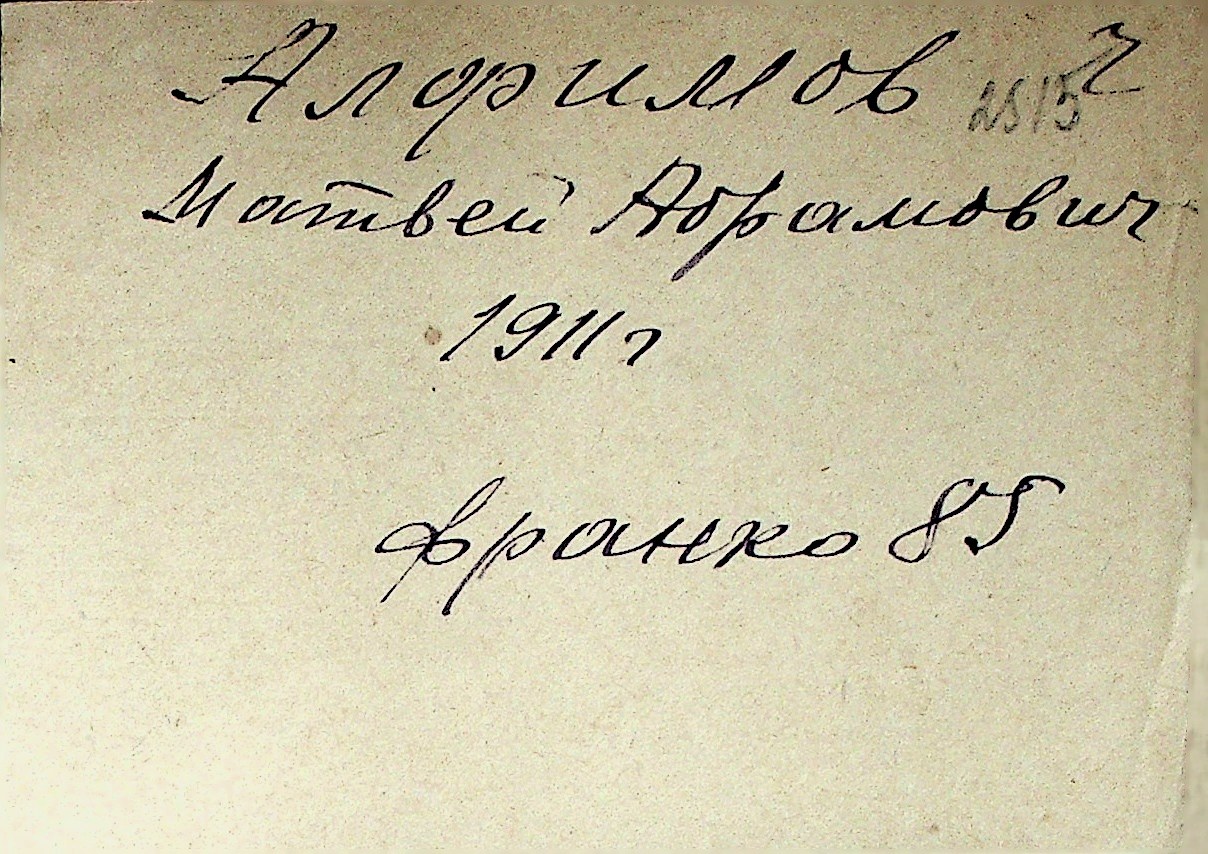 Алфимов 2515 ч
Матвей Абрамович
1911 г
Франко 85